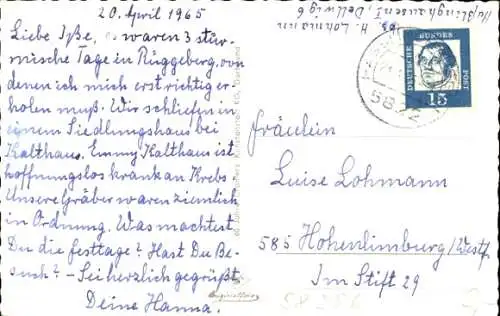 20. April 1965
Liebe Ilse, es waren 3 stür-
mische Tage in Rüggeberg, von
denen ich mich erst richtig er-
holen muß. Wir schliefen in
einem Siedlungshaus bei
Kalthaus. Emmy Kalthaus ist
hoffnungslos krank an Krebs.
Unsere Gräber waren ziemlich
in Ordnung. Was machtest
Du die Festtage? Hast Du Be-
such? - Sei herzlich gegrüßt
Deine Hanna.
H. Lohmann
Dellwig 6
DEUTSCHE BUNDESPOST
15
5822
Fräulein
Luise Lohmann
585 Hohenlimburg/Westf.
Im Stift 29